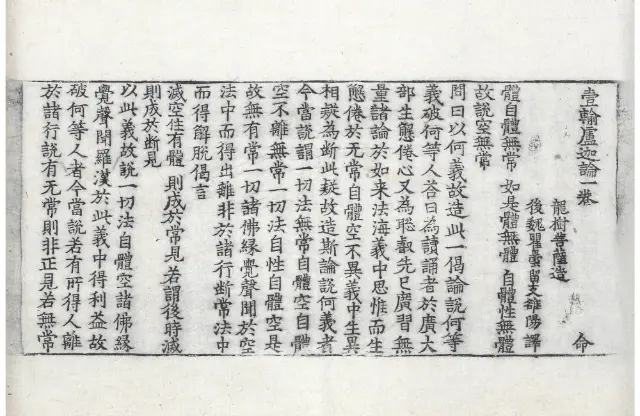 壹輸盧迦論一卷 命
龍樹菩薩造
後魏瞿曇留支雒陽譯
體自體無常 如是體無體 自體性無體
故說空無常
問曰以何義故造此一偈論說何等
義破何等人荅曰為讀誦者於廣大
部生懈倦心又為聡叡先已廣習無
量諸論於如来法海義中思惟而生
懈倦於无常自體空不異義中生異
相疑為断此疑故造斯論說何義者
今當說謂一切法無常自體空自體
空不離無常一切法自性自體空是
故無有常一切諸佛縁覺聲聞於空
法中而得出離非於諸行断常法中
而得解脫偈言
滅空住有體 則成於常見若謂後時滅
則成於断見
以此義故說一切法自體空諸佛縁
覺聲聞羅漢於此義中得利益故
破何等人者今當說者有所得人離
於諸行說有无常則非正見若無常